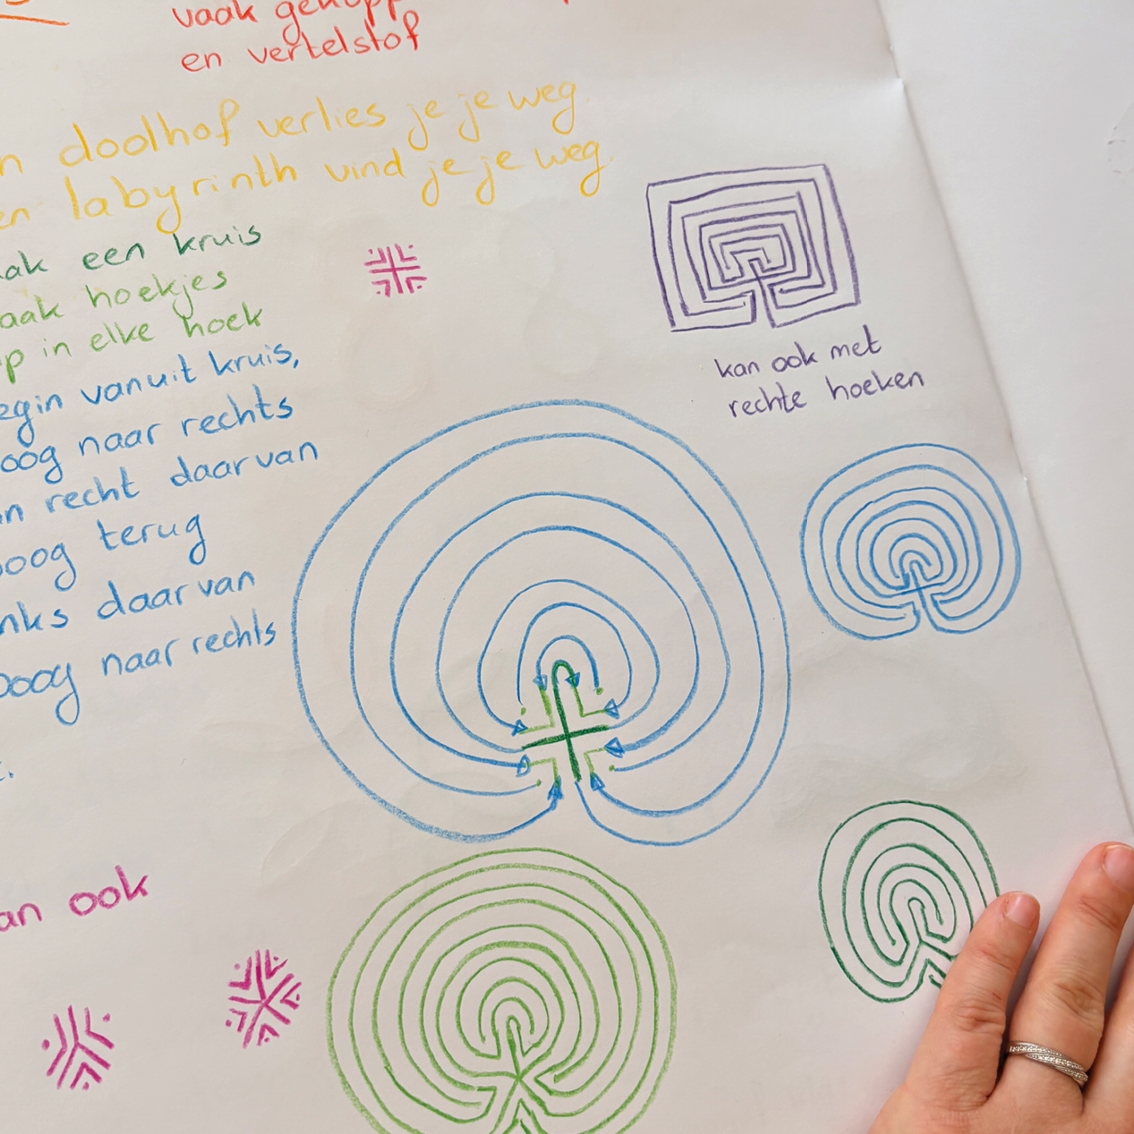 vaak
en vertelstof
n doolhof verlies je je weg.
en labyrinth vind je je weg.
ak een kruis
aak hoekjes
p in elke hoek
egin vanuit kruis,
oog naar rechts
n recht daarvan
oog terug
nks daarvan
oog naar rechts
t.
kan ook met
rechte hoeken
an ook